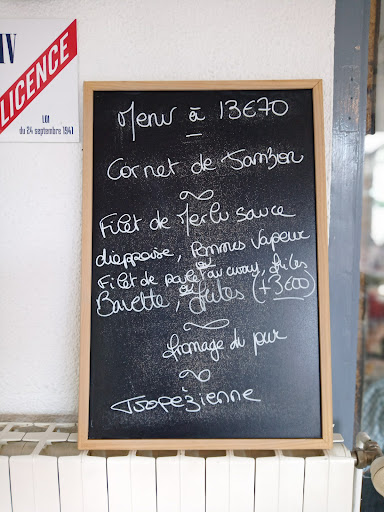 IV
LICENCE
LOI
du 24 septembre 1941
Menu à 13€70
Cornet de Jambon
Filet de Merlu sauce
dieppoise, Pommes Vapeur
ou
Filet de poulet au curry, frites
ou
Bavette, frites (+3€00)
fromage du jour
Tropézienne